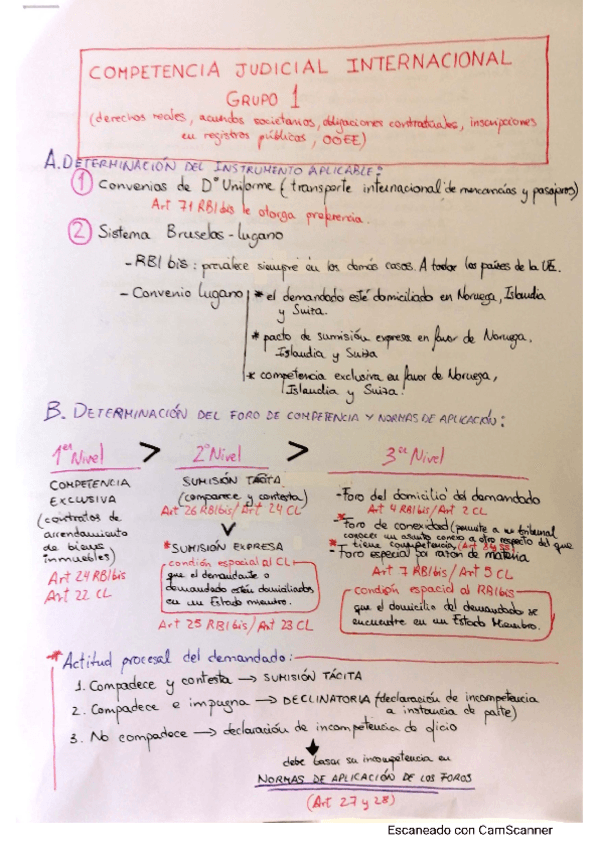 COMPETENCIA JUDICIAL INTERNACIONAL
GRUPO 1
(derechos reales, acuerdos societarios, obligaciones contractuales, inscripciones
en registros públicos, OOEE)
A. DETERMINACIÓN DEL INSTRUMENTO APLICABLE:
1 Convenios de Dº Uniforme (transporte internacional de mercancías y pasajeros)
Art 71 RBI bis le otorga preferencia.
2 Sistema Bruselas-Lugano
- RBI bis: prevalece siempre en los demás casos. A todos los países de la UE.
- Convenio Lugano * el demandado esté domiciliado en Noruega, Islandia
y Suiza.
* pacto de sumisión expresa en favor de Noruega,
Islandia y Suiza
* competencia exclusiva en favor de Noruega,
Islandia y Suiza.
B. DETERMINACIÓN DEL FORO DE COMPETENCIA Y NORMAS DE APLICACIÓN:
1er Nivel > 2º Nivel > 3er Nivel
COMPETENCIA
EXCLUSIVA
(contratos de
arrendamiento
de bienes
inmuebles)
Art 24 RBI bis
Art 22 CL
SUMISIÓN TÁCITA
(comparece y contesta)
Art 26 RBI bis/Art 24 CL
* SUMISIÓN EXPRESA
condición espacial al CL
que el demandante o
demandado estén domiciliados
en un Estado miembro.
Art 25 RBI bis/Art 23 CL
- Foro del domicilio del demandado
Art 4 RBI bis/Art 2 CL
* - foro de conexidad (permite a un tribunal
conocer un asunto conexo a otro respecto del que
* tiene competencia)
- Foro especial por razón de materia
Art 7 RBI bis/Art 5 CL
condición espacial al RBI bis
que el domicilio del demandado se
encuentre en un Estado Miembro.
* Actitud procesal del demandado:
1. Compadece y contesta → SUMISIÓN TÁCITA
2. Compadece e impugna → DECLINATORIA (declaración de incompetencia
a instancia de parte)
3. No compadece → declaración de incompetencia de oficio
debe basar su incompetencia en
NORMAS DE APLICACIÓN DE LOS FOROS
(Art 27 y 28)
Escaneado con CamScanner